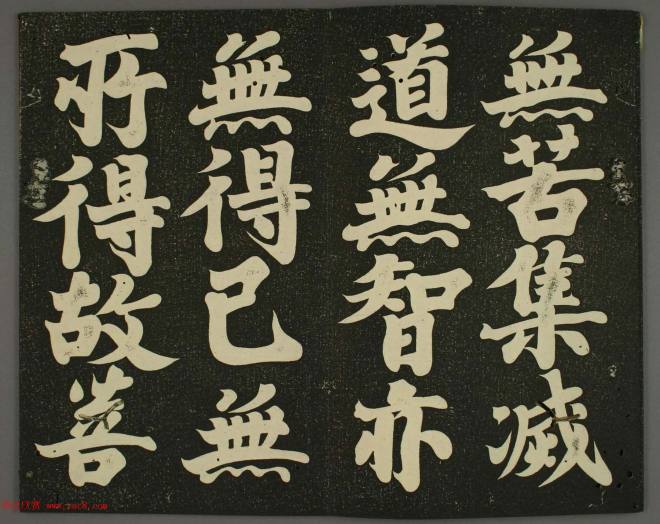 無苦集滅
道無智亦
無得已無
所得故菩
www.yac8.com